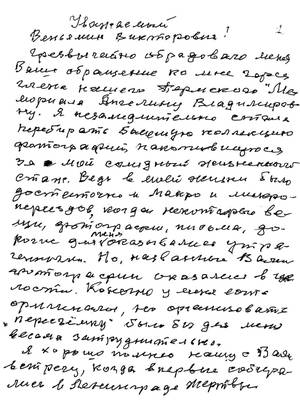 Уважаемый
Вениамин Викторович!
1
Чрезвычайно обрадовало меня
Ваше обращение ко мне через
члена нашего Пермского "Ме
мориала Ангелину Владимиров
ну. Я незамедлительно стала
перебирать бысемую коллекцию
фотографий накопившуюся
за мой солидный жизненного
стаж. Ведь в моей жизни было
достаточно и макро и микро-
переездов, когда некоторые ве
щи, фотографии, письма, до-
рогие для меня оказывались утра
ченными. Но, названные Вами
фотографии оказались в це
лости. Конечно у меня есть
оригиналы, но организовать
"пересъёмку" было бы для меня
весьма затруднительно.
Я хорошо помню нашу с Вами
встречу, когда впервые собира
лись в Ленинграде жертвы